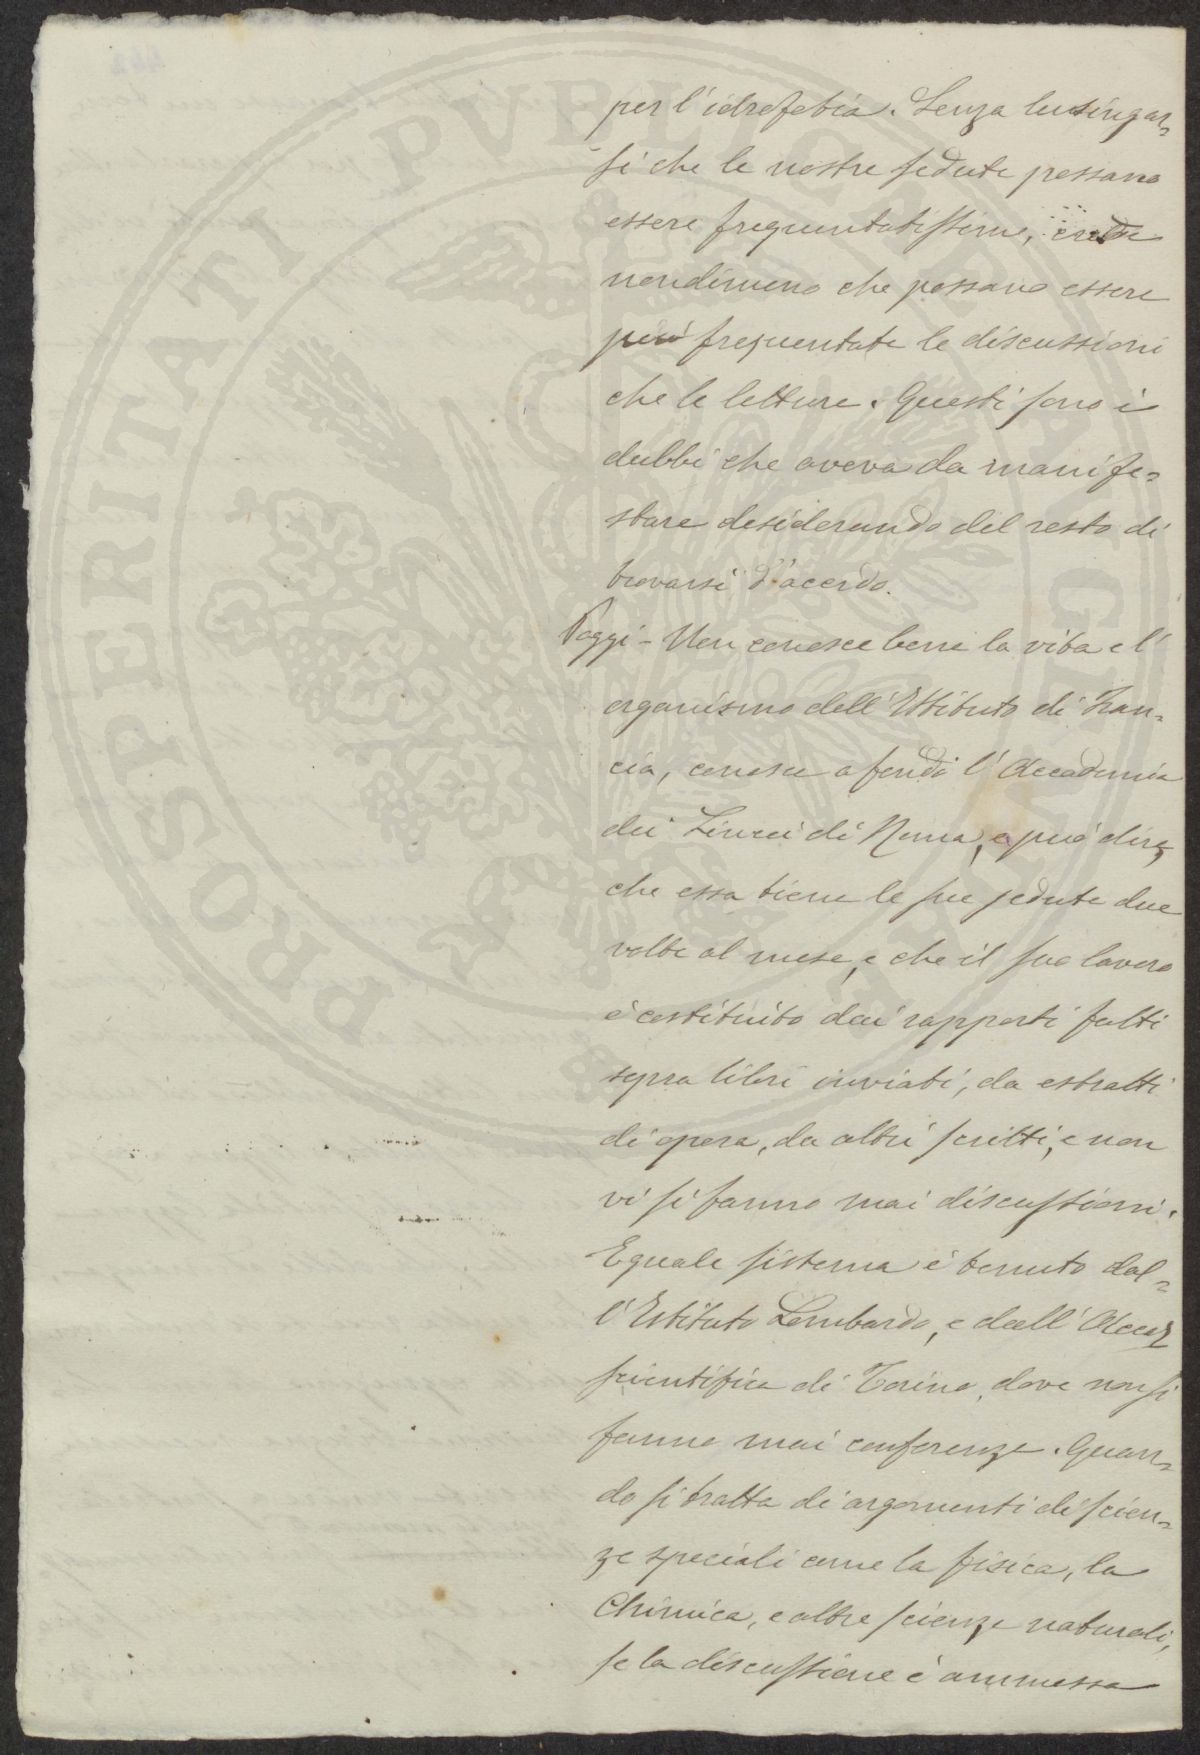 per l'idrofobia. Senza lusingar-
si che le nostre sedute possano
essere frequentatissime, crede
nondimeno che possano essere
più frequentate le discussioni
che le letture. Questi sono i
dubbi che aveva da manife-
stare desiderando del resto di
trovarsi d'accordo.
Poggi - Non conosce bene la vita e l'
organismo dell'Istituto di Fran-
cia, conosce a fondo l'Accademia
dei Lincei di Roma, e può dire,
che essa tiene le sue sedute due
volte al mese, e che il suo lavoro
è costituito dai rapporti fatti
sopra libri inviati, da estratti
di opera, da altri scritti, e non
vi si fanno mai discussioni.
Eguale sistema è tenuto dal-
l'Istituto Lombardo, e dall'Accad
scientifica di Torino, dove non si
fanno mai conferenze. Quan-
do si tratta di argomenti di scien-
ze speciali come la fisica, la
Chimica, e altre scienze naturali,
se la discussione è ammessa
PROSPERITATI PVBLICAE AVGENDAE